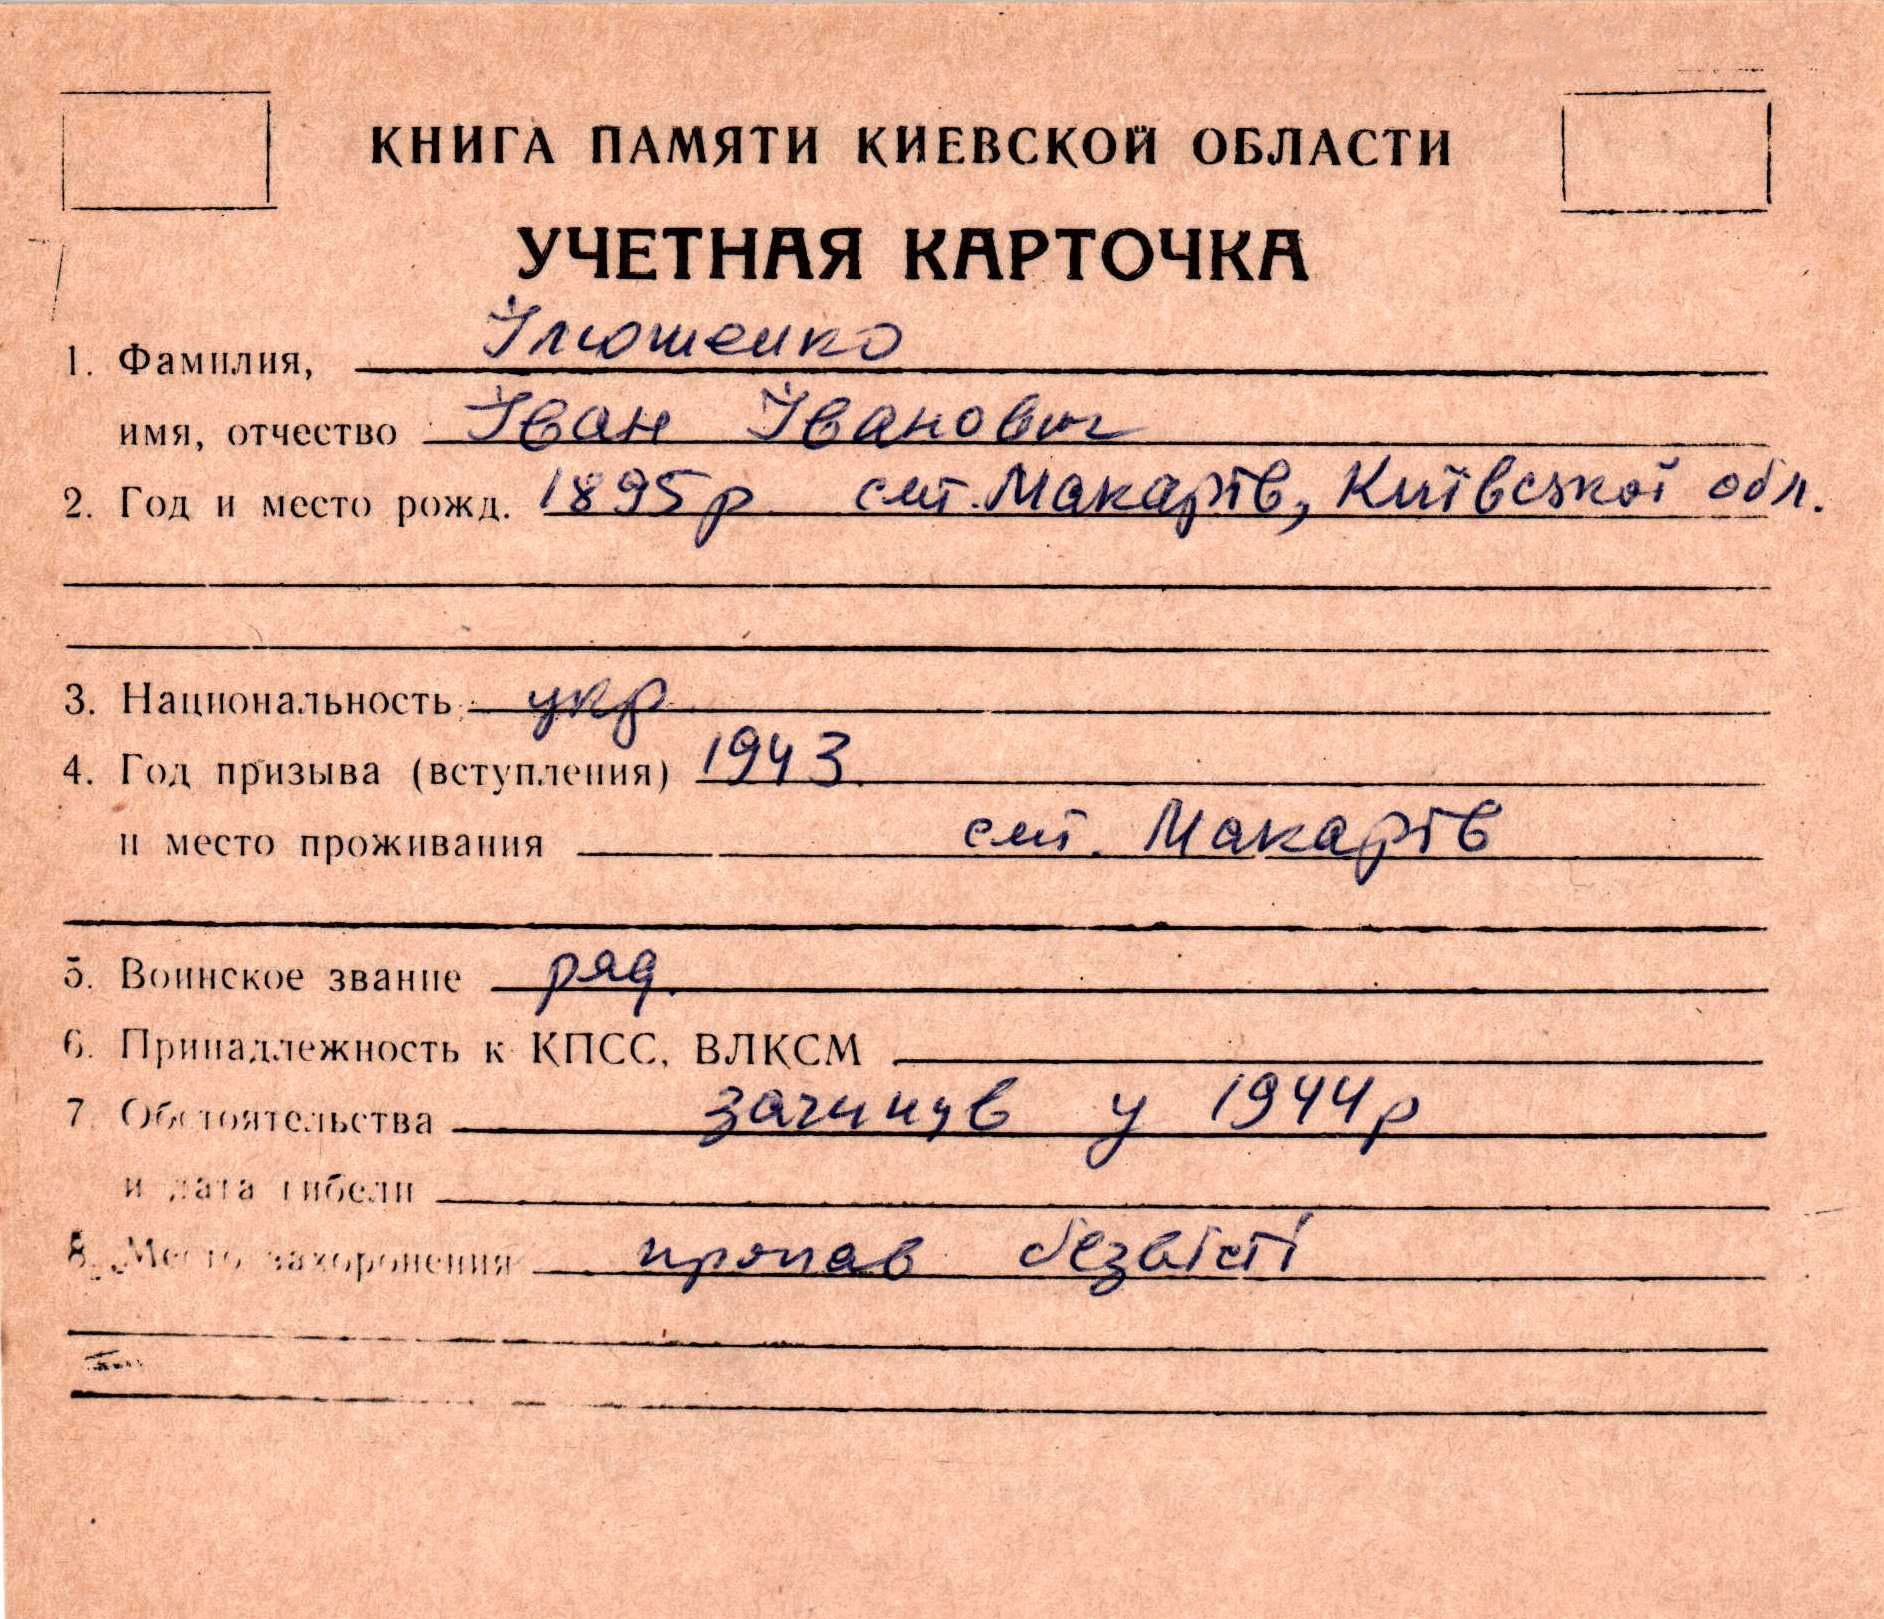 КНИГА ПАМЯТИ КИЕВСКОЙ ОБЛАСТИ
УЧЕТНАЯ КАРТОЧКА
1. Фамилия, Ілюшенко
имя, отчество Іван Іванович
2. Год и место рожд. 1895р смт. Макарів, Київської обл.
3. Национальность укр
4. Год призыва (вступления) 1943
и место проживания смт. Макарів
5. Воинское звание ряд.
6. Принадлежность к КПСС, ВЛКСМ
7. Обстоятельства загинув у 1944р
и дата гибели
8. Место захоронения пропав безвісті